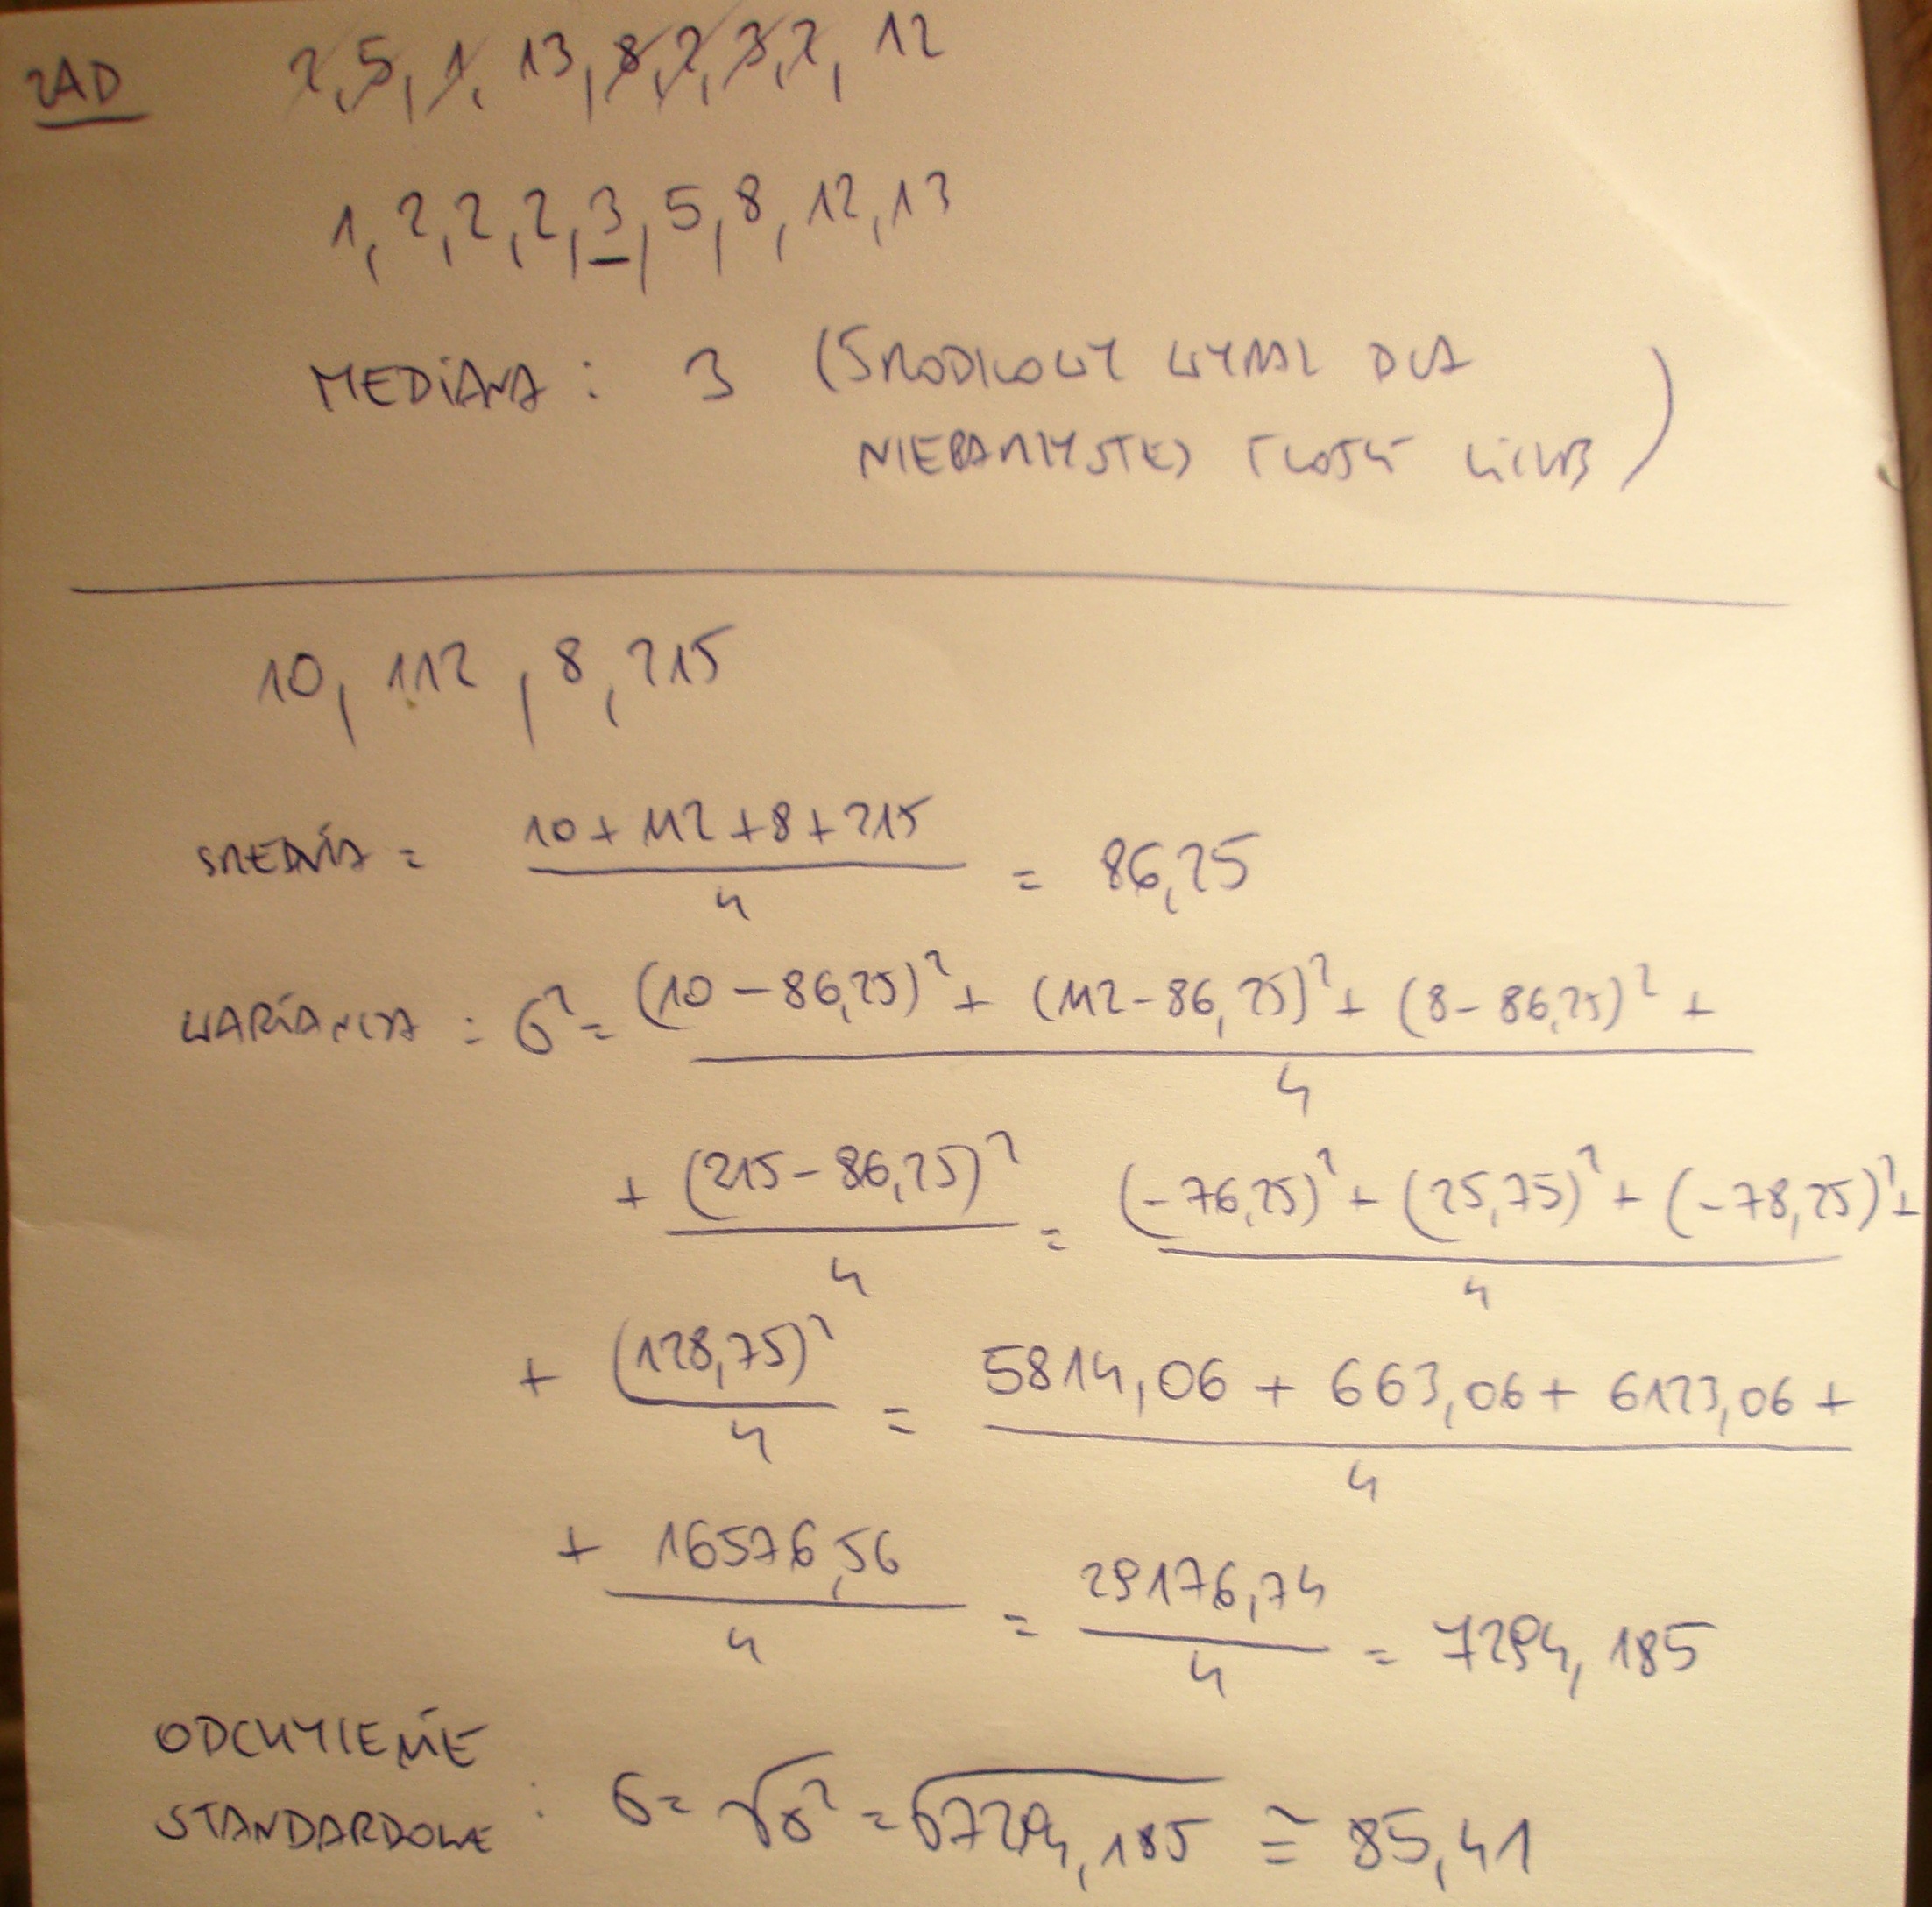 ZAD 2, 5, 1, 13, 8, 2, 3, 2, 12
1, 2, 2, 2, 3, 5, 8, 12, 13
MEDIANA : 3 (ŚRODKOWY WYRAZ DLA
NIEPARZYSTEJ ILOŚCI LICZB)
10, 112, 8, 215
SREDNIA = \frac{10 + 112 + 8 + 215}{4} = 86,25
WARIANCJA : σ² = \frac{(10 - 86,25)² + (112 - 86,25)² + (8 - 86,25)² +}{4}
+ \frac{(215 - 86,25)²}{4} = \frac{(-76,25)² + (25,75)² + (-78,25)² +}{4}
+ \frac{(128,75)²}{4} = \frac{5814,06 + 663,06 + 6123,06 +}{4}
+ \frac{16576,56}{4} = \frac{29176,74}{4} = 7294,185
ODCHYLENIE
STANDARDOWE : σ = √σ² = √7294,185 ≅ 85,41